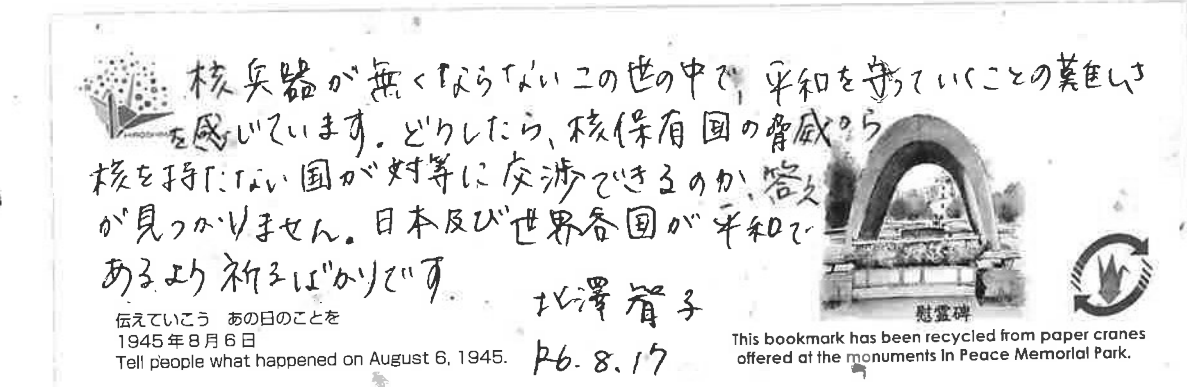 核兵器が無くならないこの世の中で、平和を守っていくことの難しさ
を感じています。どうしたら、核保有国の脅威から
核を持たない国が対等に交渉できるのか、答え
が見つかりません。日本及び世界各国が平和で
あるよう祈るばかりです
北澤智子
R6.8.17
HIROSHIMA
伝えていこう あの日のことを
1945年8月6日
Tell people what happened on August 6, 1945.
慰霊碑
This bookmark has been recycled from paper cranes
offered at the monuments in Peace Memorial Park.